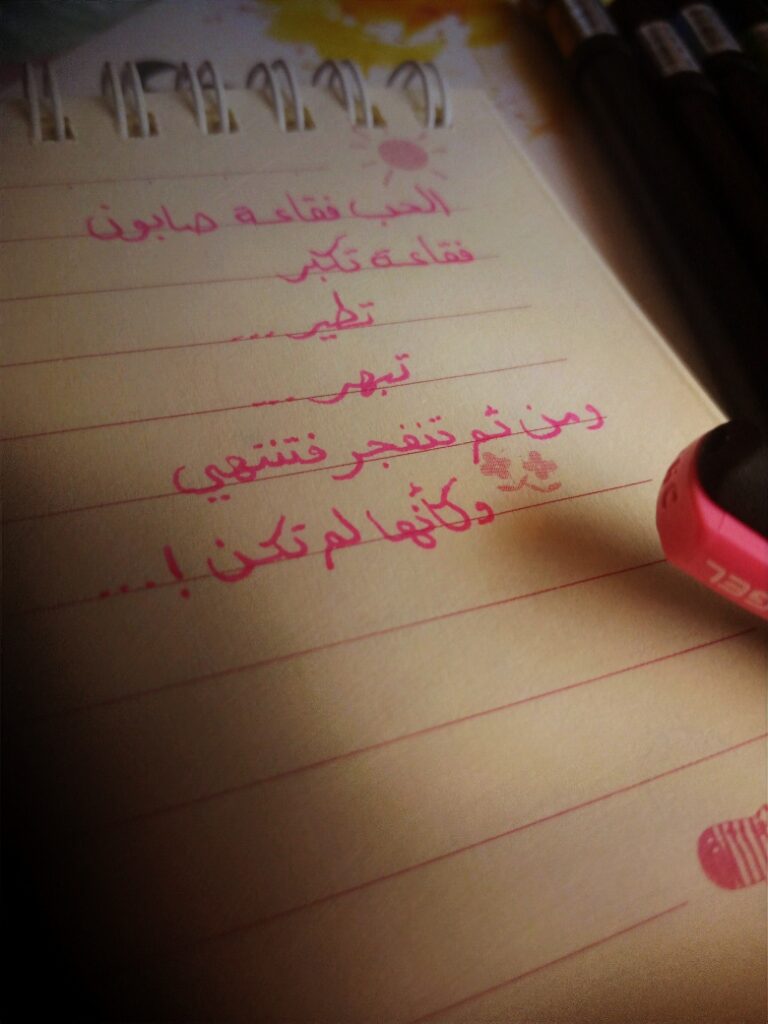 الحب فقاعة صابون
فقاعة تكبر
تطير ...
تبهر ...
ومن ثم تنفجر فتنتهي
وكأنها لم تكن ! ...
GEL